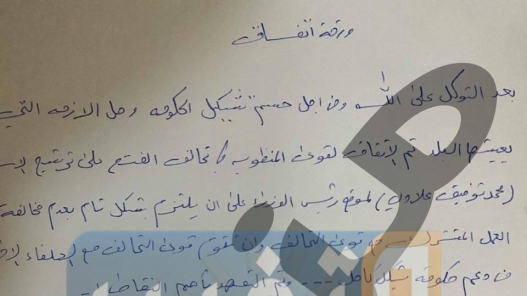 ورقة اتفاق
بعد التوكل على الله ومن اجل حسم تشكيل الحكومه وحل الازمه التي
يعيشها البلد تم الاتفاق لقوى المنطويه بتحالف الفتح على ترشيح
(محمد توفيق علاوي) لموقع رئيس الوزراء على ان يلتزم بشكل تام بعدم مخالفة
العمل المشترك مع قوى التحالف وان تقوم قوى التحالف مع الحلفاء
في دعم حكومته بشكل كامل --- وتم التعهد باهم النقاط :-